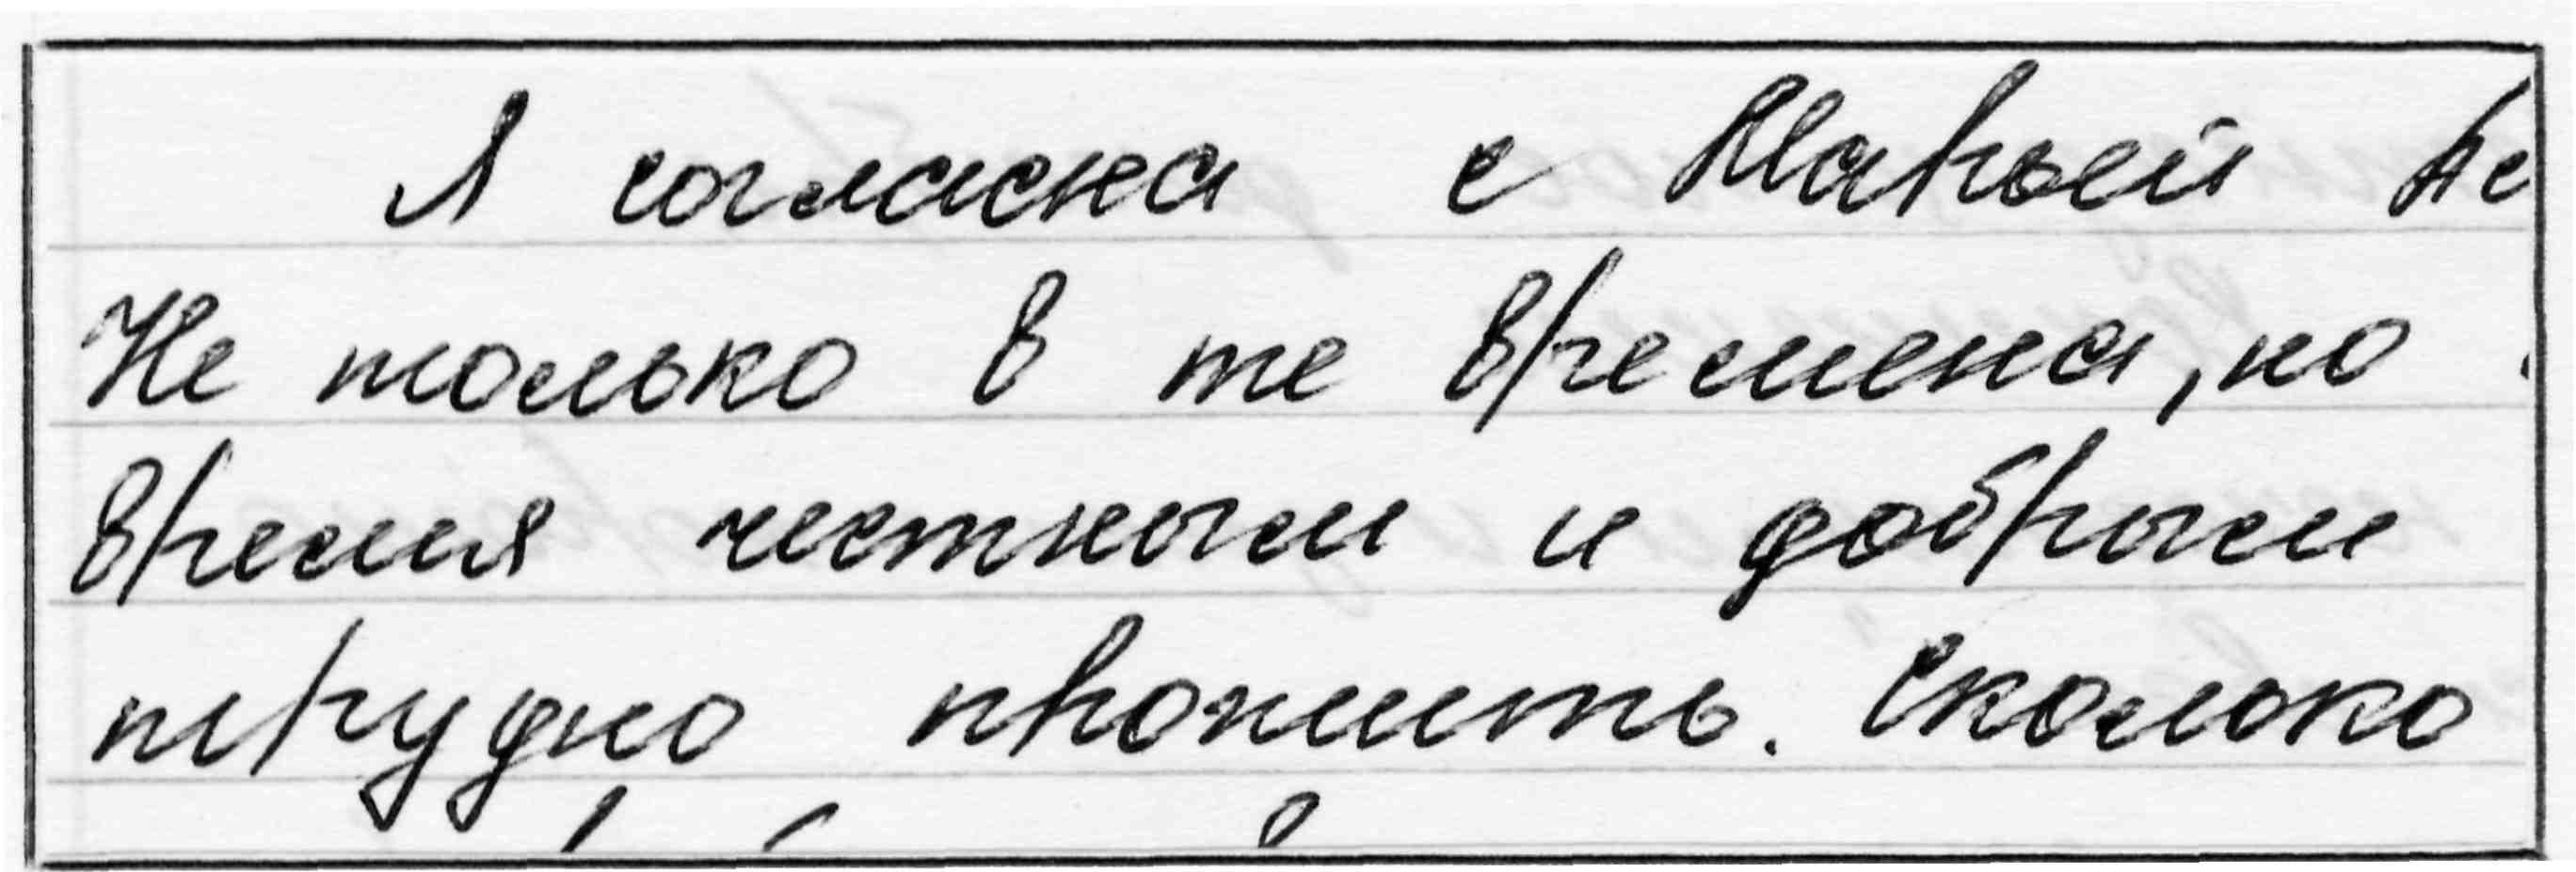 Я согласна с Марьей
Не только в те времена, но
время честным и добрым
трудно прожить. Сколько